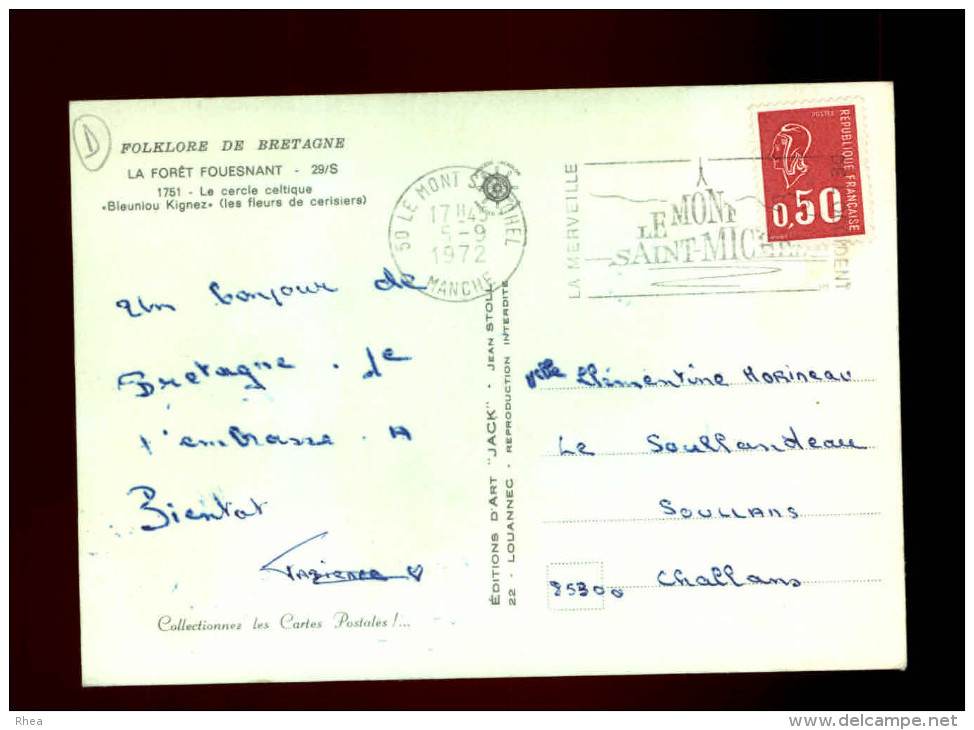 D
FOLKLORE DE BRETAGNE
LA FORÊT FOUESNANT - 29/S
1751 - Le cercle celtique
«Bleuniou Kignez» (les fleurs de cerisiers)
50 LE MONT ST MICHEL
17 H 45
5-9
1972
MANCHE
LA MERVEILLE
LE MONT
SAINT-MICHEL
POSTES
RÉPUBLIQUE FRANÇAISE
0,50
Un bonjour de
Bretagne. Je
t'embrasse. A
Bientot
ÉDITIONS D'ART "JACK" - JEAN STOLL
22 - LOUANNEC - REPRODUCTION INTERDITE
Mlle Clémentine MORINEAU
Le Soullandeau
SOULLANS
85300 Challans
Collectionnez les Cartes Postales !...
Rhea
www.delcampe.net